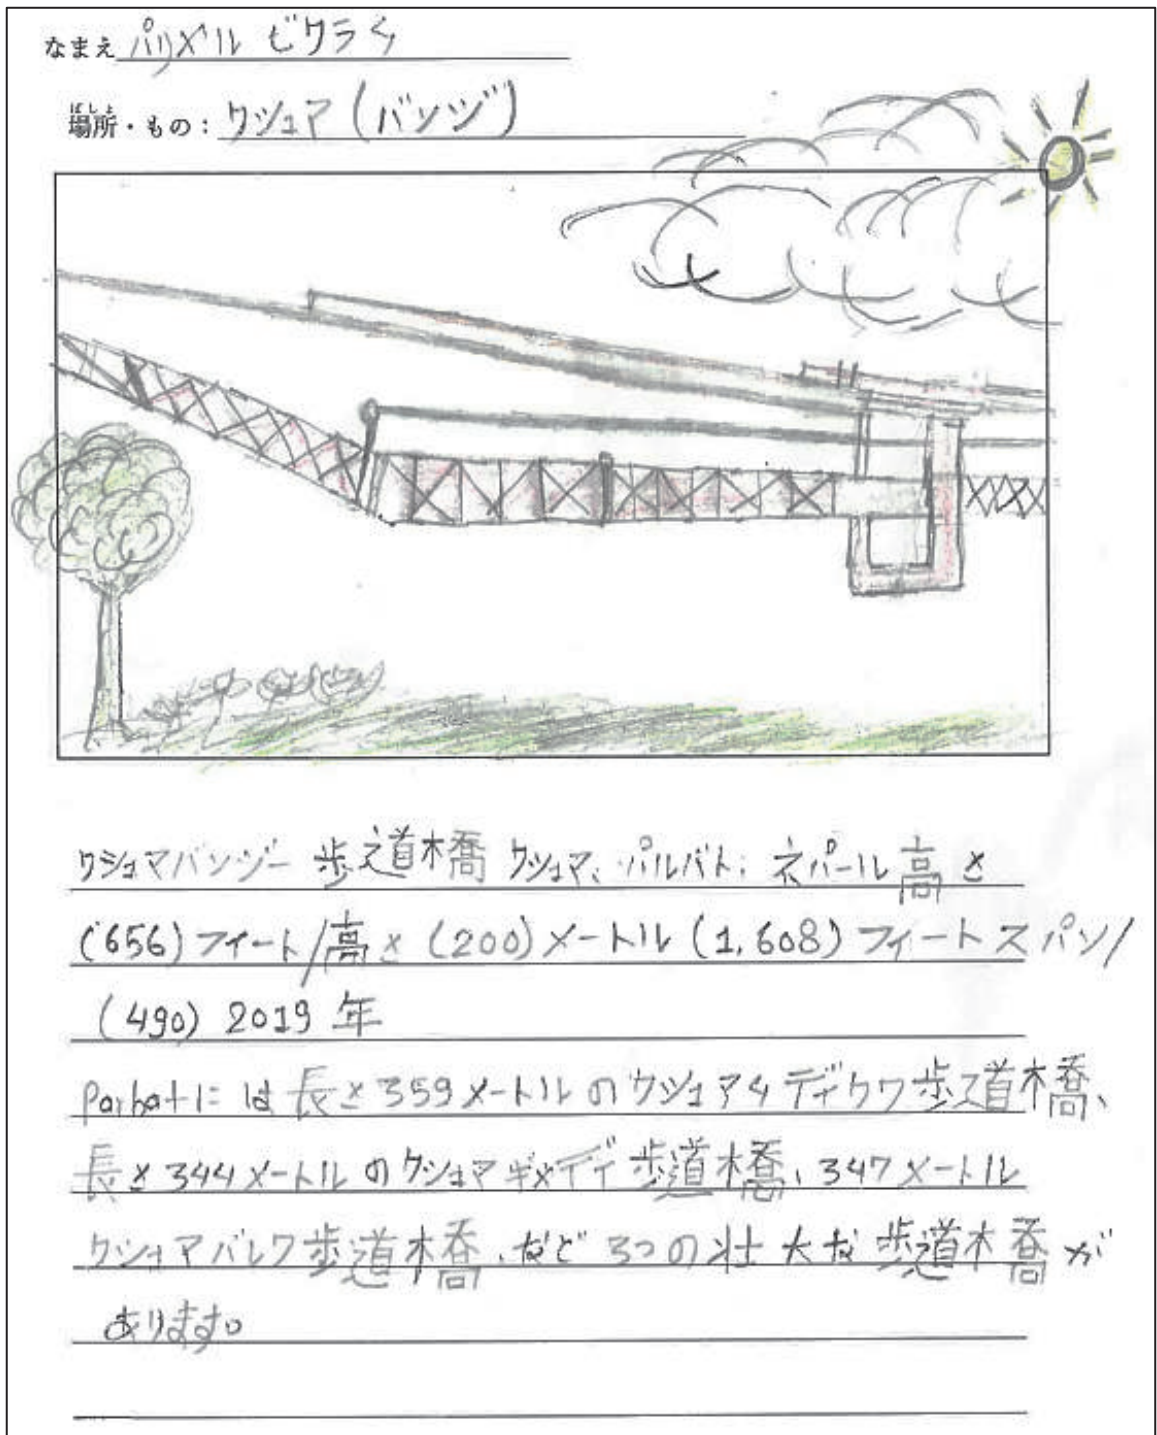 なまえ パリメル ビクラム
場所・もの: クシュマ (バンジ)
クシュマバンジー 歩道橋 クシュマ、パルバト、ネパール 高さ
(656) フィート/高さ (200) メートル (1,608) フィート スパン/
(490) 2019 年
Parbatには 長さ359メートルの クシュマムディクワ歩道橋、
長さ344メートルのクシュマギャディ歩道橋、347メートル
クシュマバレワ歩道橋、など 3つの壮大な歩道橋が
あります。